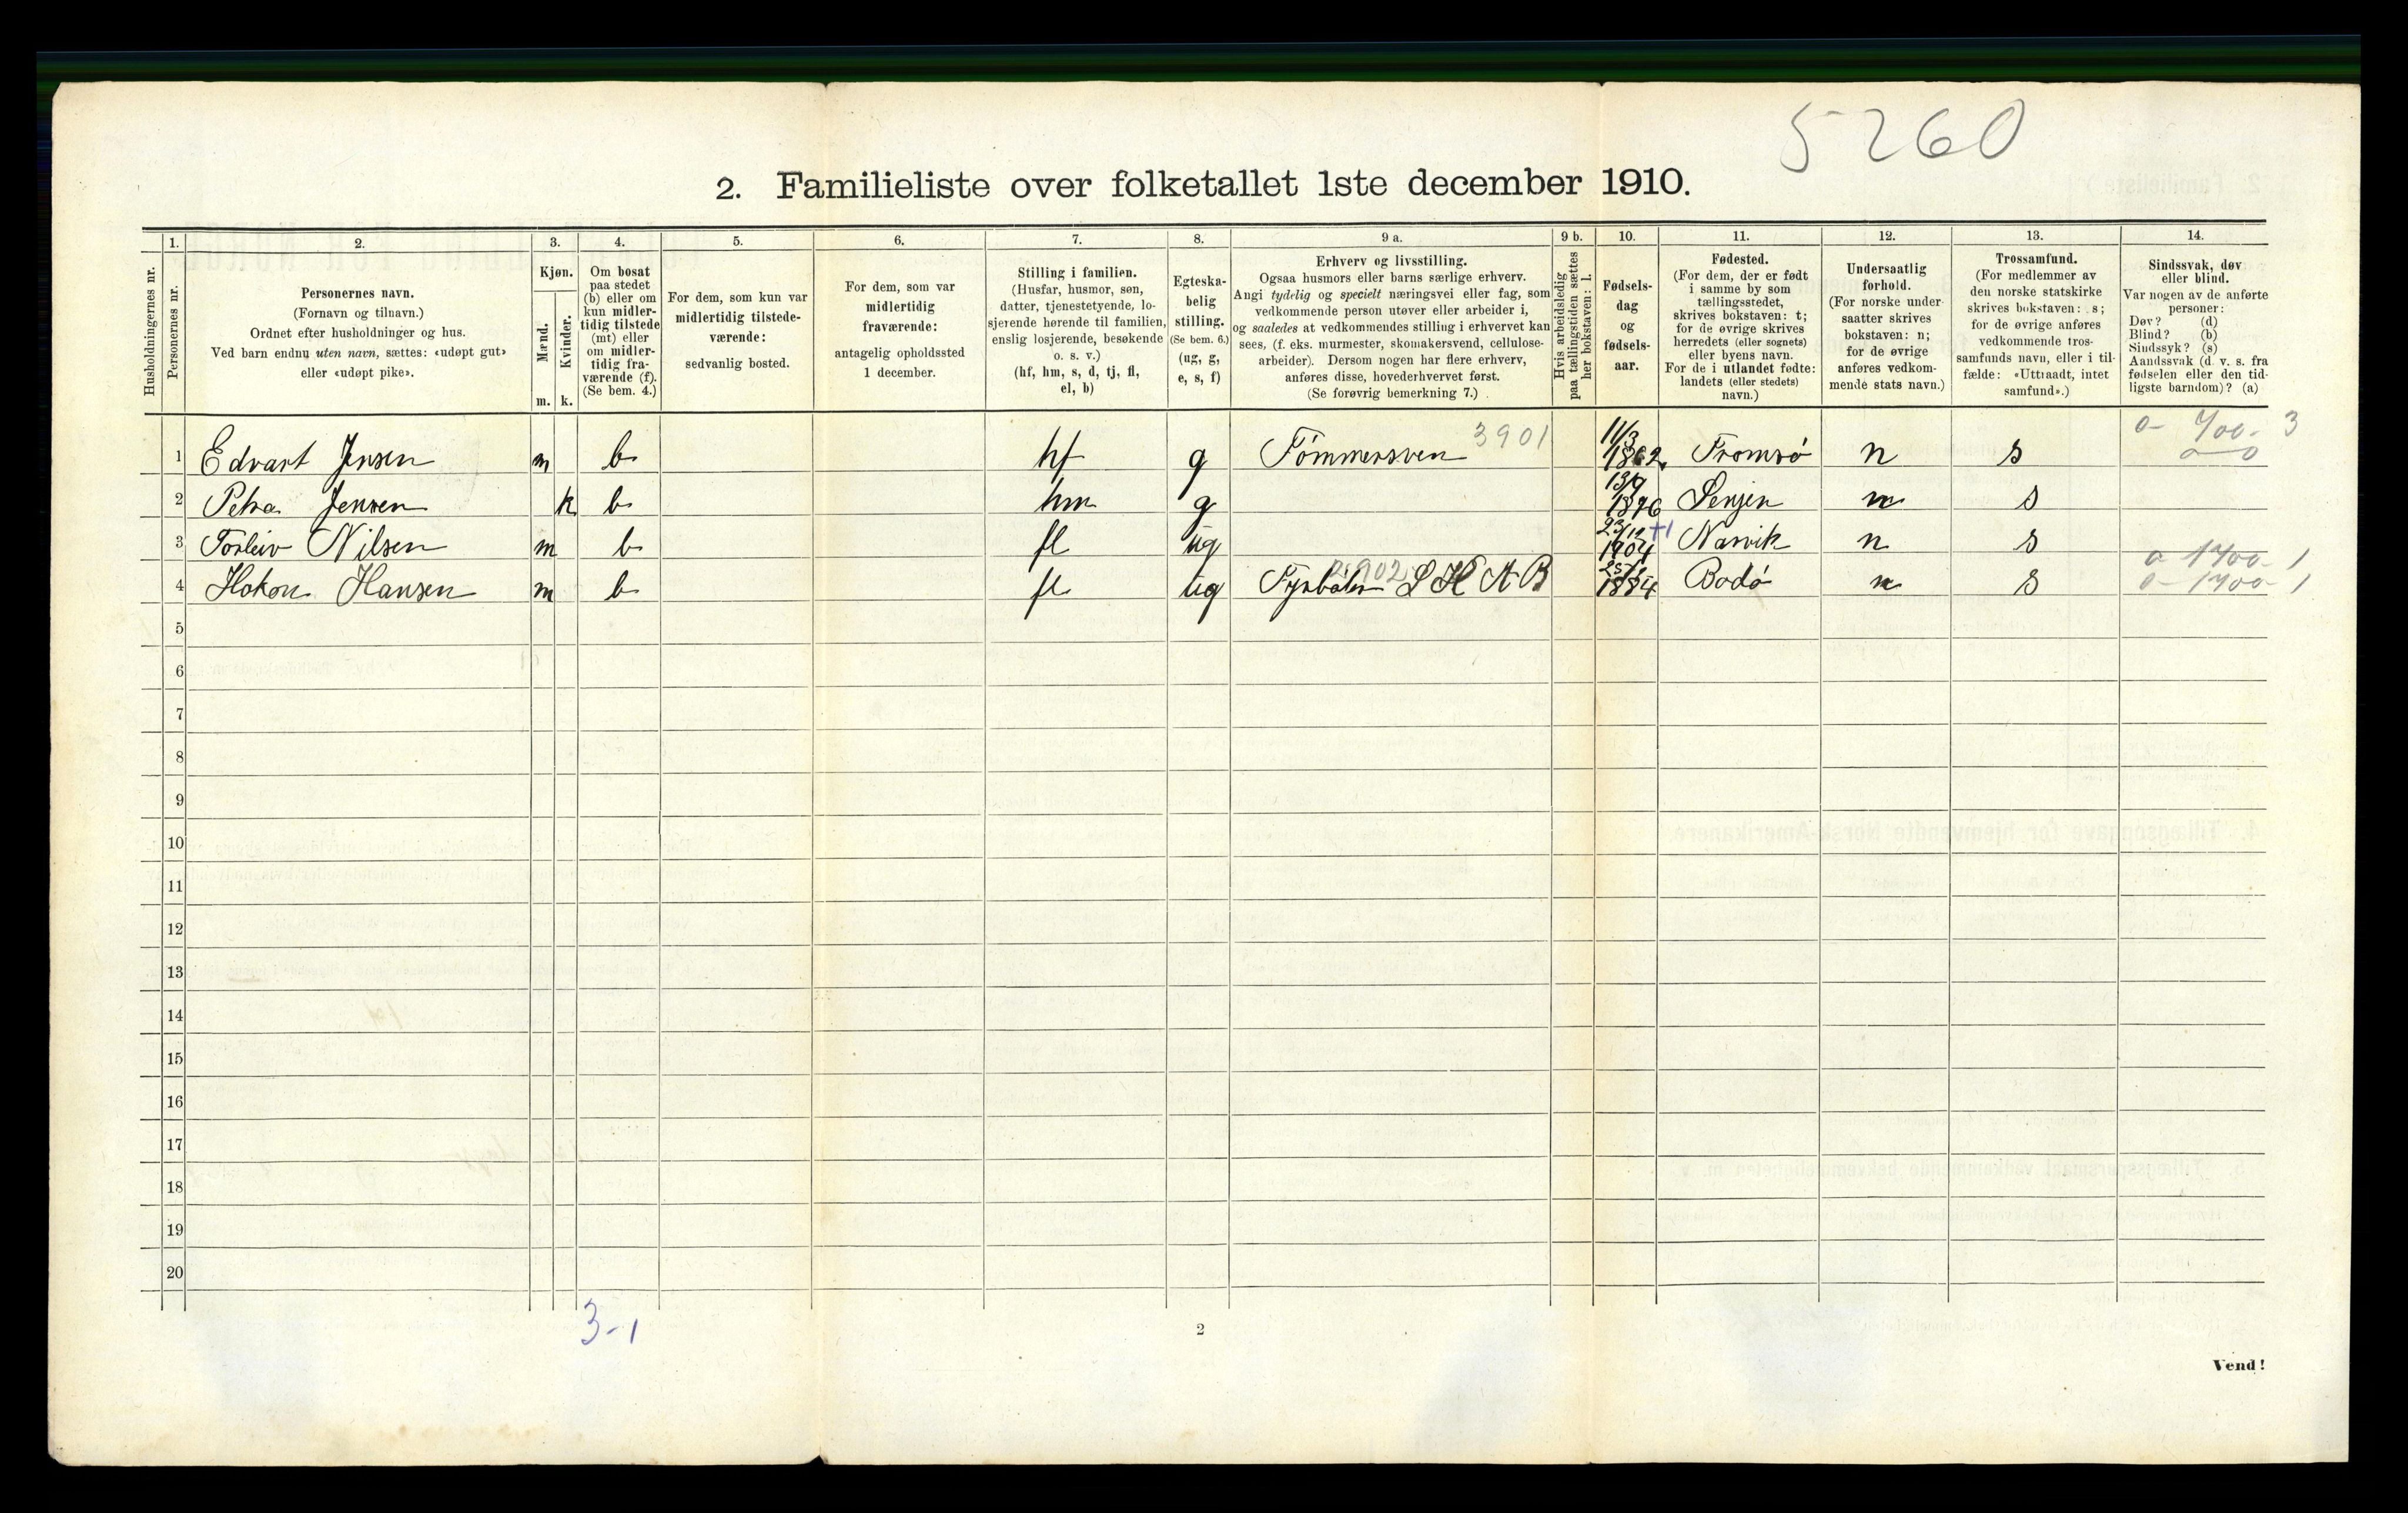 5260
2. Familieliste over folketallet 1ste december 1910.
Husholdningernes nr.
1.
Personernes nr.
2.
Personernes navn.
(Fornavn og tilnavn.)
Ordnet efter husholdninger og hus.
Ved barn endnu uten navn, sættes: «udøpt gut»
eller «udøpt pike».
3.
Kjøn.
Mænd.
Kvinder.
m. k.
4.
Om bosat
paa stedet
(b) eller om
kun midler-
tidig tilstede
(mt) eller
om midler-
tidig fra-
værende (f).
(Se bem. 4.)
5.
For dem, som kun var
midlertidig tilstede-
værende:
sedvanlig bosted.
6.
For dem, som var
midlertidig
fraværende:
antagelig opholdssted
1 december.
7.
Stilling i familien.
(Husfar, husmor, søn,
datter, tjenestetyende, lo-
sjerende hørende til familien,
enslig losjerende, besøkende
o. s. v.)
(hf, hm, s, d, tj, fl,
el, b)
8.
Egteska-
belig
stilling.
(Se bem. 6.)
(ug, g,
e, s, f)
9 a.
Erhverv og livsstilling.
Ogsaa husmors eller barns særlige erhverv.
Angi tydelig og specielt næringsvei eller fag, som
vedkommende person utøver eller arbeider i,
og saaledes at vedkommendes stilling i erhvervet kan
sees, (f. eks. murmester, skomakersvend, cellulose-
arbeider). Dersom nogen har flere erhverv,
anføres disse, hovederhvervet først.
(Se forøvrig bemerkning 7.)
9 b.
Hvis arbeidsledig
paa tællingstiden sættes
her bokstaven: l.
10.
Fødsels-
dag
og
fødsels-
aar.
11.
Fødested.
(For dem, der er født
i samme by som
tællingsstedet,
skrives bokstaven: t;
for de øvrige skrives
herredets (eller sognets)
eller byens navn.
For de i utlandet fødte:
landets (eller stedets)
navn.)
12.
Undersaatlig
forhold.
(For norske under-
saatter skrives
bokstaven: n;
for de øvrige
anføres vedkom-
mende stats navn.)
13.
Trossamfund.
(For medlemmer av
den norske statskirke
skrives bokstaven: s;
for de øvrige anføres
vedkommende tros-
samfunds navn, eller i til-
fælde: «Uttraadt, intet
samfund».)
14.
Sindssvak, døv
eller blind.
Var nogen av de anførte
personer:
Døv? (d)
Blind? (b)
Sindssyk? (s)
Aandssvak (d. v. s. fra
fødselen eller den tid-
ligste barndom)? (a)
1 Edvart Jensen m b hf g Tömmersven 3901 11/3 1862 Tromsö n s 0- 700- 3
0 0
2 Petra Jensen k b hm g 13/9 1876 Senjen n s
3 Torleiv Nilsen m b fl ug 23/11 1904 +1 Narvik n s 0 1700- 1
4 Hokon Hansen m b fl ug Fyrböter L K A B 1884 Bodö n s 0- 1700- 1
5
6
7
8
9
10
11
12
13
14
15
16
17
18
19
20
3-1
2
Vend!